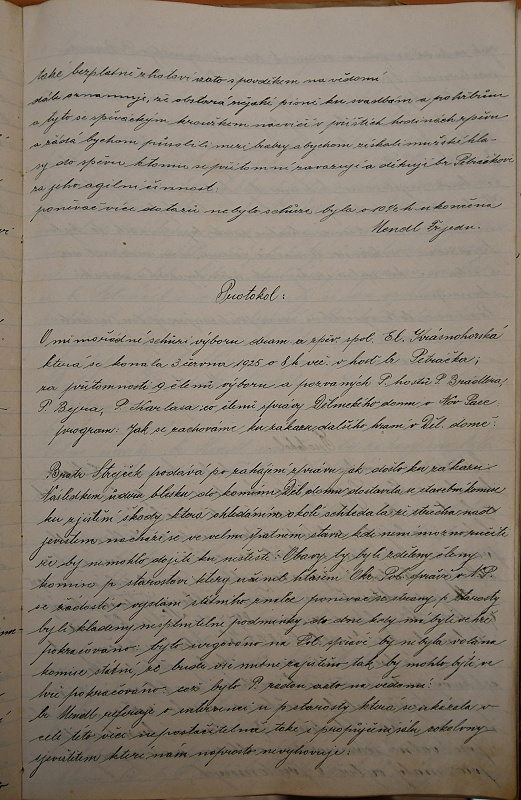 také bezplatně školovi zato s povděkem na vědomí
dále oznamuje, že obstará nějaké písně ku svadbám a pohřbům
a byto se spěváckým kroužkem nacvičí v příštích hodinách zpěvu
a žádá bychom působili mezi bratry abychom získali mužské hla-
sy do spěvu ktomu se přítomní zavazují a děkují br. Pětráčkovi
za jeho agilní činnost.
poněvač více dotazů nebylo schůze byla o 10¾ h. ukončena
Mendl Frjedr.
Protokol:
O mimořádné schůzi výboru dram a zpěv. spol. El. Krásnohorská
která se konala 3 června 1925 o 8 h več. v host. br Pětráčka;
za přítomnosti 9 členů výboru a pozvaných P. hostů P. Bradlera,
P. Bejna, P. Karlasa co členů správy Dělnického domu v Nov Pace
program: Jak se zachováme ku zákazu dalších hram v Děl. domě:
Bratr Strejček podává po zahájení zprávu jak došlo ku zákazu.
Následkem úderu blesku do komína Děl domu dostavila se stavební komise
ku zjištění škody která ohledáním okolí shledala že střecha nad
jevištěm nachází se ve velmi špatném stavu kde není možno ručiti
že by nemohlo dojíti ku neštěstí: Obavy ty byly sděleny členy
komise p starostovi který učinil hlášení Okr. Pol. správě v N.P.
se žádostí o vyslání státního znalce poněvač se strany p. starosty
byli kladeny nesplnitelné podmínky do dne kdy má býti ve hře
pokračováno. bylo urgováno na Pol. správě by nebyla volána
komise státní, že bude vše nutné zajištěno tak by mohlo býti ve
hře pokračováno. což bylo P. radou vzato na vědomí:
br Mendl referuje o intervenci u p starosty která se ukázala v
celé této věci nepostačitelná také i propůjčení sálu sokolovny
jevištěm které nám naprosto nevyhovuje.